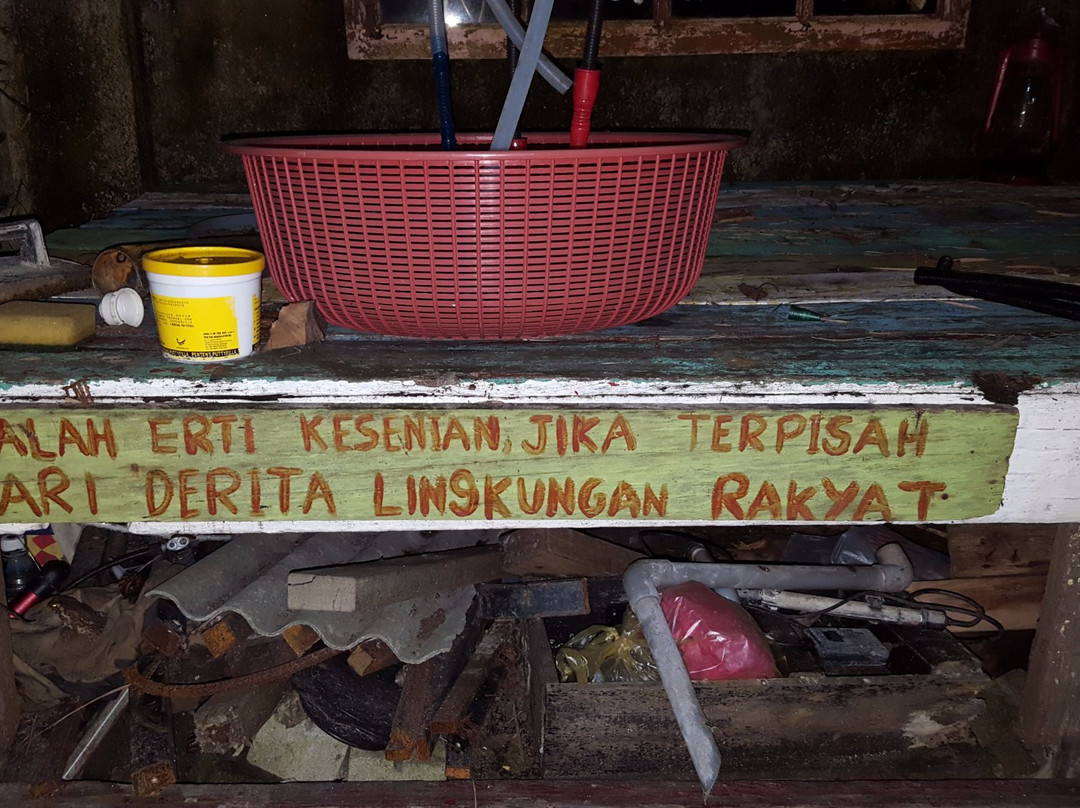 ALAH ERTI KESENIAN, JIKA TERPISAH
ARI DERITA LINGKUNGAN RAKYAT